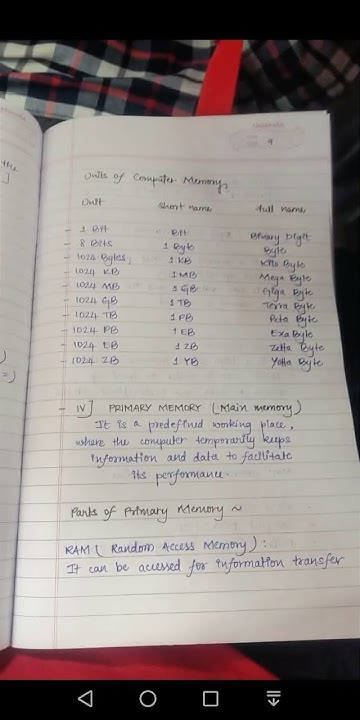 the
9
Units of Computer Memory,
Unit Short name full name
- 1 Bit Bit Binary Digit
- 8 Bits 1 Byte Byte
- 1024 Bytes, 1 KB Kilo Byte
- 1024 KB 1 MB Mega Byte
- 1024 MB 1 GB Giga Byte
- 1024 GB 1 TB Terra Byte
- 1024 TB 1 PB Peta Byte
- 1024 PB 1 EB Exa Byte
- 1024 EB 1 ZB Zetta Byte
- 1024 ZB 1 YB Yotta Byte
- IV] PRIMARY MEMORY (Main memory)
It is a predefined working place,
where the computer temporarily keeps
information and data to facilitate
its performance.
Parts of Primary Memory ~
RAM ( Random Access Memory) :
It can be accessed for information transfer